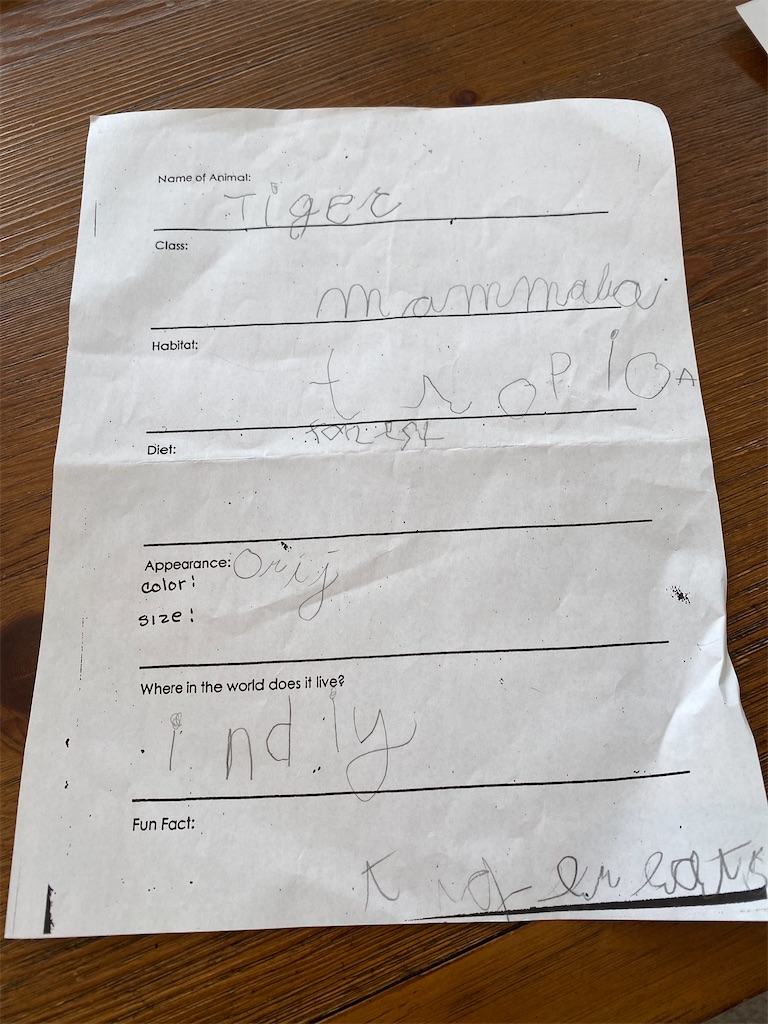 Name of Animal:
Tiger
Class:
mammala
Habitat:
tropioA
forest
Diet:
Appearance: orij
color:
size:
Where in the world does it live?
indiy
Fun Fact: